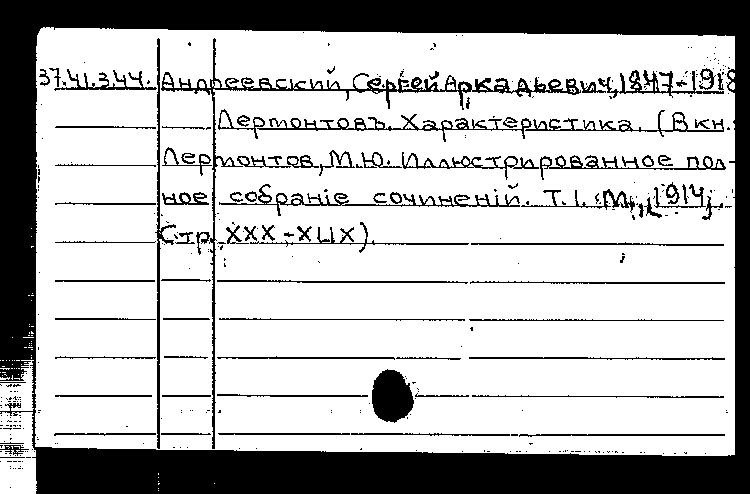 37.41.3.44. Андреевский, Сергей Аркадьевич, 1847-1918
Лермонтовъ. Характеристика. (В кн.:
Лермонтов, М.Ю. Иллюстрированное пол-
ное собраніе сочиненій. Т.І. М., 1914,
Стр. XXX-XLIX).